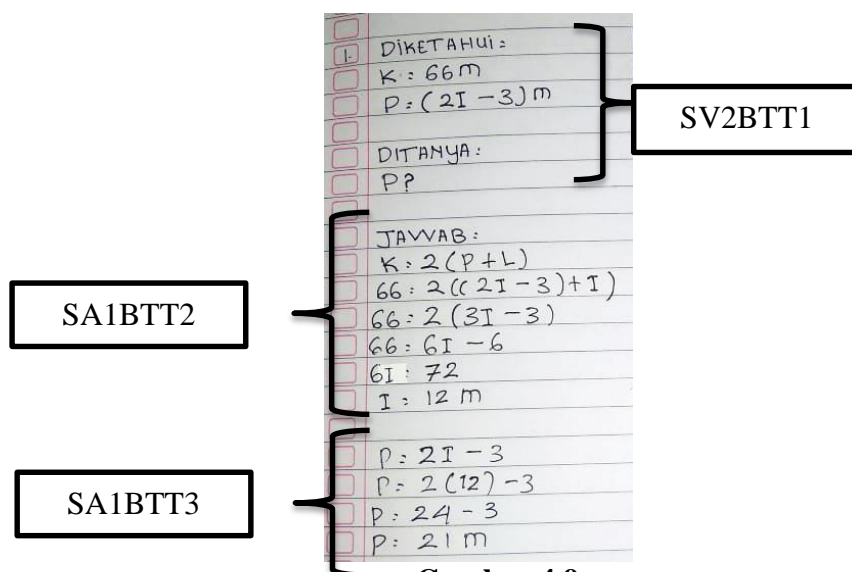 1. DIKETAHUI:
K: 66 m
P: (2I - 3) m
DITANYA:
P?
SV2BTT1
JAWAB:
K: 2(P + L)
66: 2((2I - 3) + I)
66: 2(3I - 3)
66: 6I - 6
6I: 72
I: 12 m
SA1BTT2
P: 2I - 3
P: 2(12) - 3
P: 24 - 3
P: 21 m
SA1BTT3